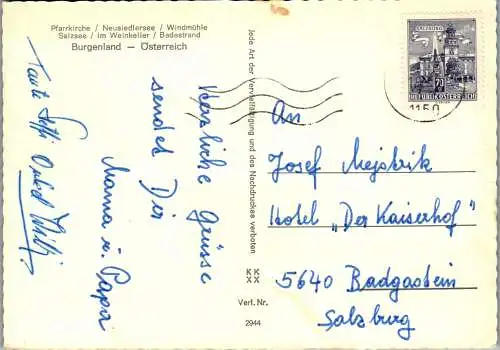 Pfarrkirche / Neusiedlersee / Windmühle
Salzsee / Im Weinkeller / Badestrand
Burgenland — Österreich
Herzliche Grüsse
sendet Dir
Mama u. Papa
Tante
Onkel Willi
Jede Art der Vervielfältigung und des Nachdruckes verboten
KK
XX
Verl. Nr.
2944
SALZBURG
70
REPUBLIK ÖSTERREICH
1150
An
Josef Mejstrik
Hotel „Der Kaiserhof"
5640 Badgastein
Salzburg